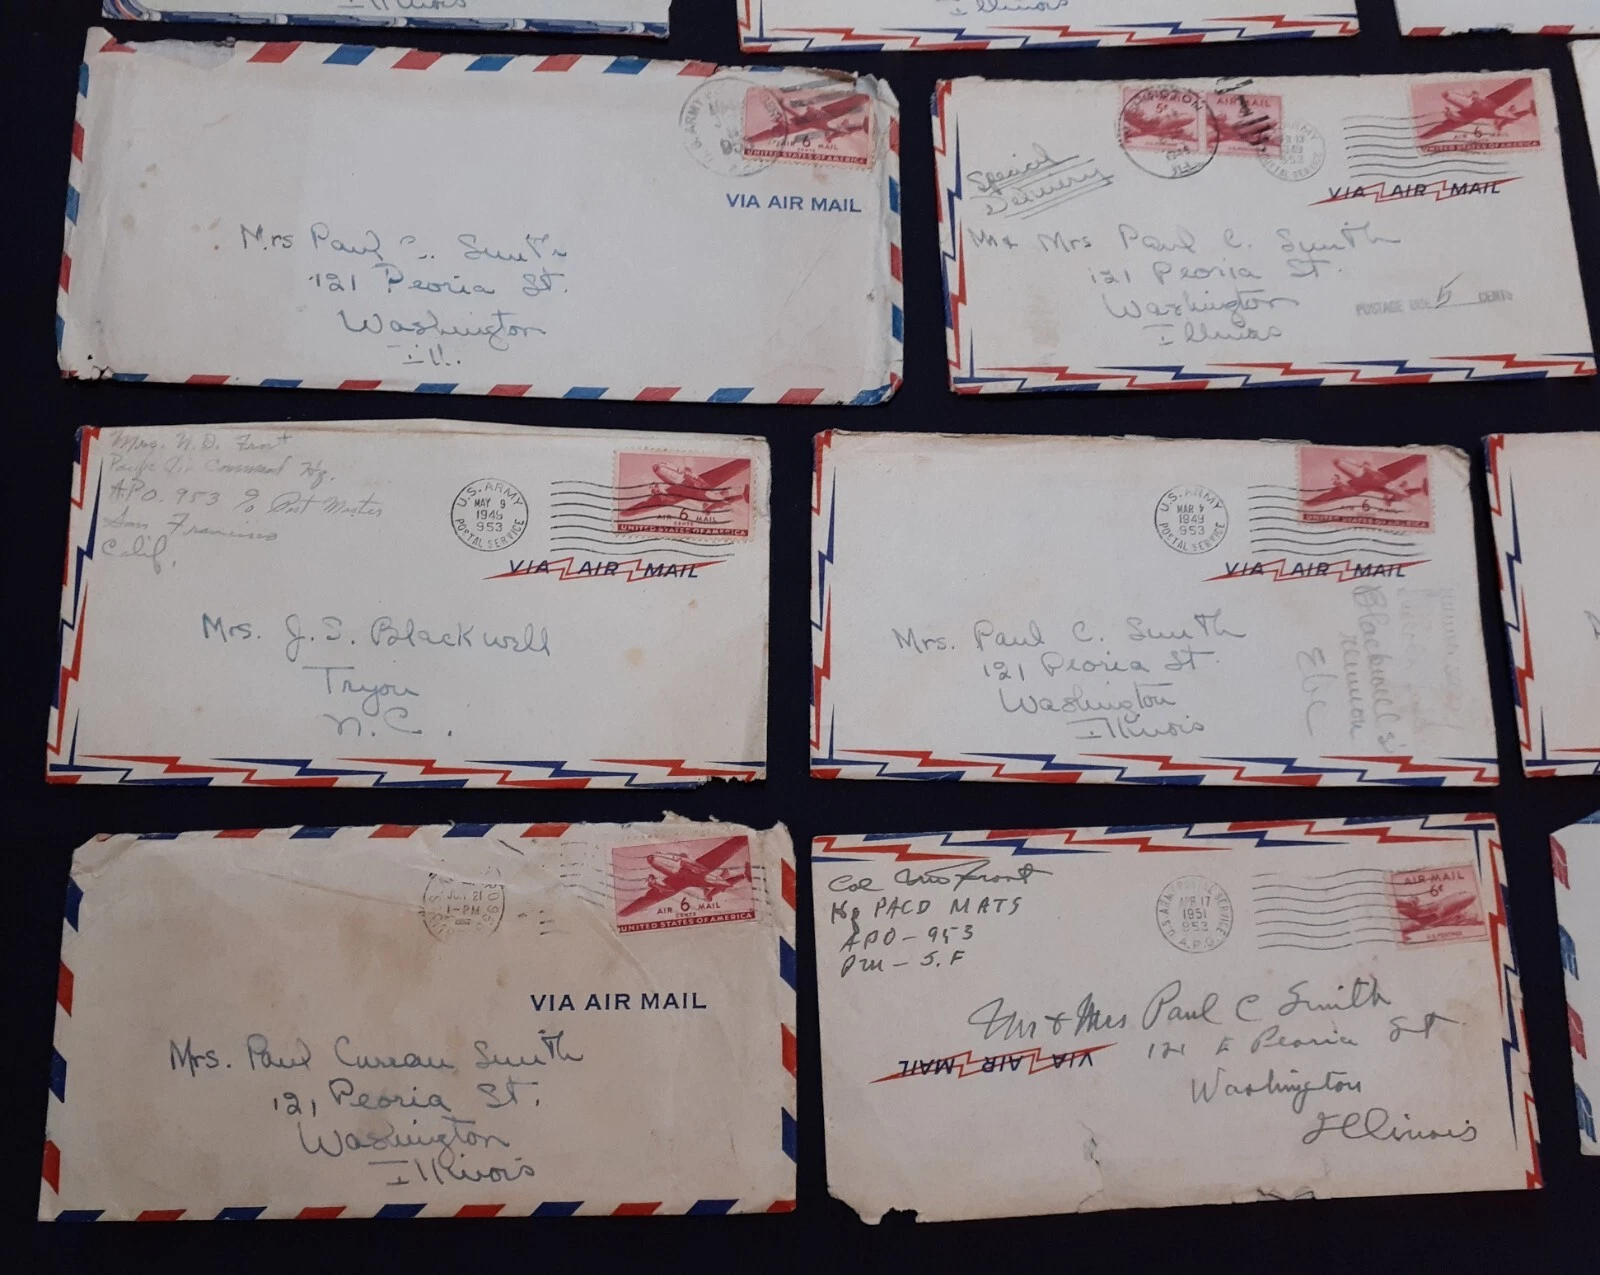 Illinois
Illinois
U.S. ARMY
6
AIR MAIL
CENTS
UNITED STATES OF AMERICA
VIA AIR MAIL
Mrs Paul C. Smith
121 Peoria St.
Washington
Ill.
5¢
AIR MAIL
AIR 6 MAIL
UNITED STATES OF AMERICA
1949
953
POSTAL SERVICE
Special
Delivery
VIA AIR MAIL
Mr & Mrs Paul C. Smith
121 Peoria St.
Washington
Illinois
POSTAGE DUE 5 CENTS
Mrs. N. D. Front
Pacific Air Command Hq.
A.P.O. 953 % Post Master
San Francisco
Calif.
U.S. ARMY
MAY 9
1949
953
POSTAL SERVICE
6
AIR MAIL
CENTS
UNITED STATES OF AMERICA
VIA AIR MAIL
Mrs. J. S. Blackwell
Tryon
N.C.
U.S. ARMY
MAR
1949
953
POSTAL SERVICE
6
AIR MAIL
UNITED STATES OF AMERICA
VIA AIR MAIL
Mrs. Paul C. Smith
121 Peoria St.
Washington
Illinois
Blackwell's
Reunion
Etc
JUN 21
1-PM
6
AIR MAIL
CENTS
UNITED STATES OF AMERICA
VIA AIR MAIL
Mrs. Paul Curran Smith
121 Peoria St.
Washington
Illinois
Col Otto Front
Hq PACD MATS
APO - 953
PM - S.F
U.S. ARMY POSTAL SERVICE
APR 17
1951
953
A.P.O.
AIR MAIL
6¢
U.S. POSTAGE
Mr & Mrs Paul C Smith
121 E Peoria St
Washington
Illinois
VIA AIR MAIL